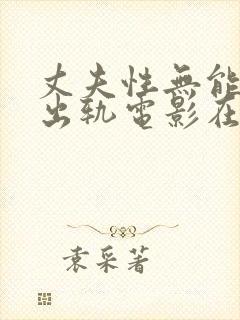 丈夫性無能
出軌電影在
袁采著